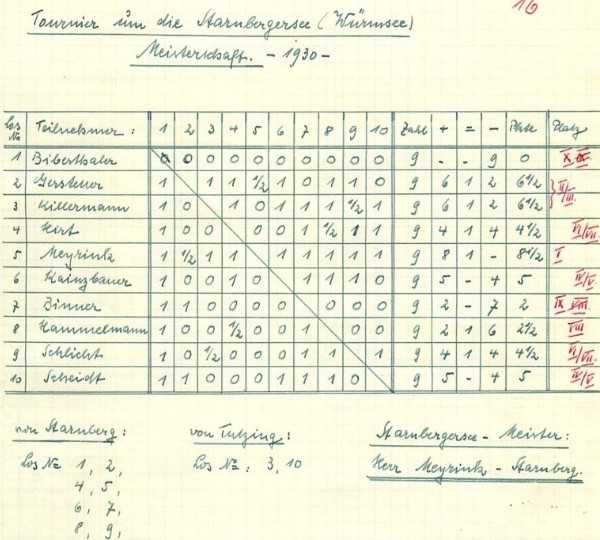 16
Tournier um die Starnbergersee (Würmsee)
Meisterschaft. - 1930 -
Los No Teilnehmer: 1 2 3 4 5 6 7 8 9 10 Zahl + = - Pkte Platz
1 Biberthaler 0 0 0 0 0 0 0 0 0 9 - - 9 0
2 Gersteuer 1 1 1 1/2 1 0 1 1 0 9 6 1 2 6 1/2 II/III.
3 Killermann 1 0 1 0 1 1 1 1/2 1 9 6 1 2 6 1/2
4 Hirt 1 0 0 0 0 1 1/2 1 1 9 4 1 4 4 1/2 VI/VII.
5 Meyrink 1 1/2 1 1 1 1 1 1 1 9 8 1 - 8 1/2 I
6 Kainzbauer 1 0 0 1 0 1 1 1 0 9 5 - 4 5 IV/V.
7 Binner 1 1 0 0 0 0 0 0 0 9 2 - 7 2 IX
8 Hammelmann 1 0 0 1/2 0 0 1 0 0 9 2 1 6 2 1/2 VIII
9 Schlicht 1 0 1/2 0 0 0 1 1 1 9 4 1 4 4 1/2 VI/VII.
10 Scheidt 1 1 0 0 0 1 1 1 0 9 5 - 4 5 IV/V.
von Starnberg:
Los No 1, 2,
4, 5,
6, 7,
8, 9,
von Tutzing:
Los No: 3, 10
Starnbergersee - Meister:
Herr Meyrink - Starnberg.